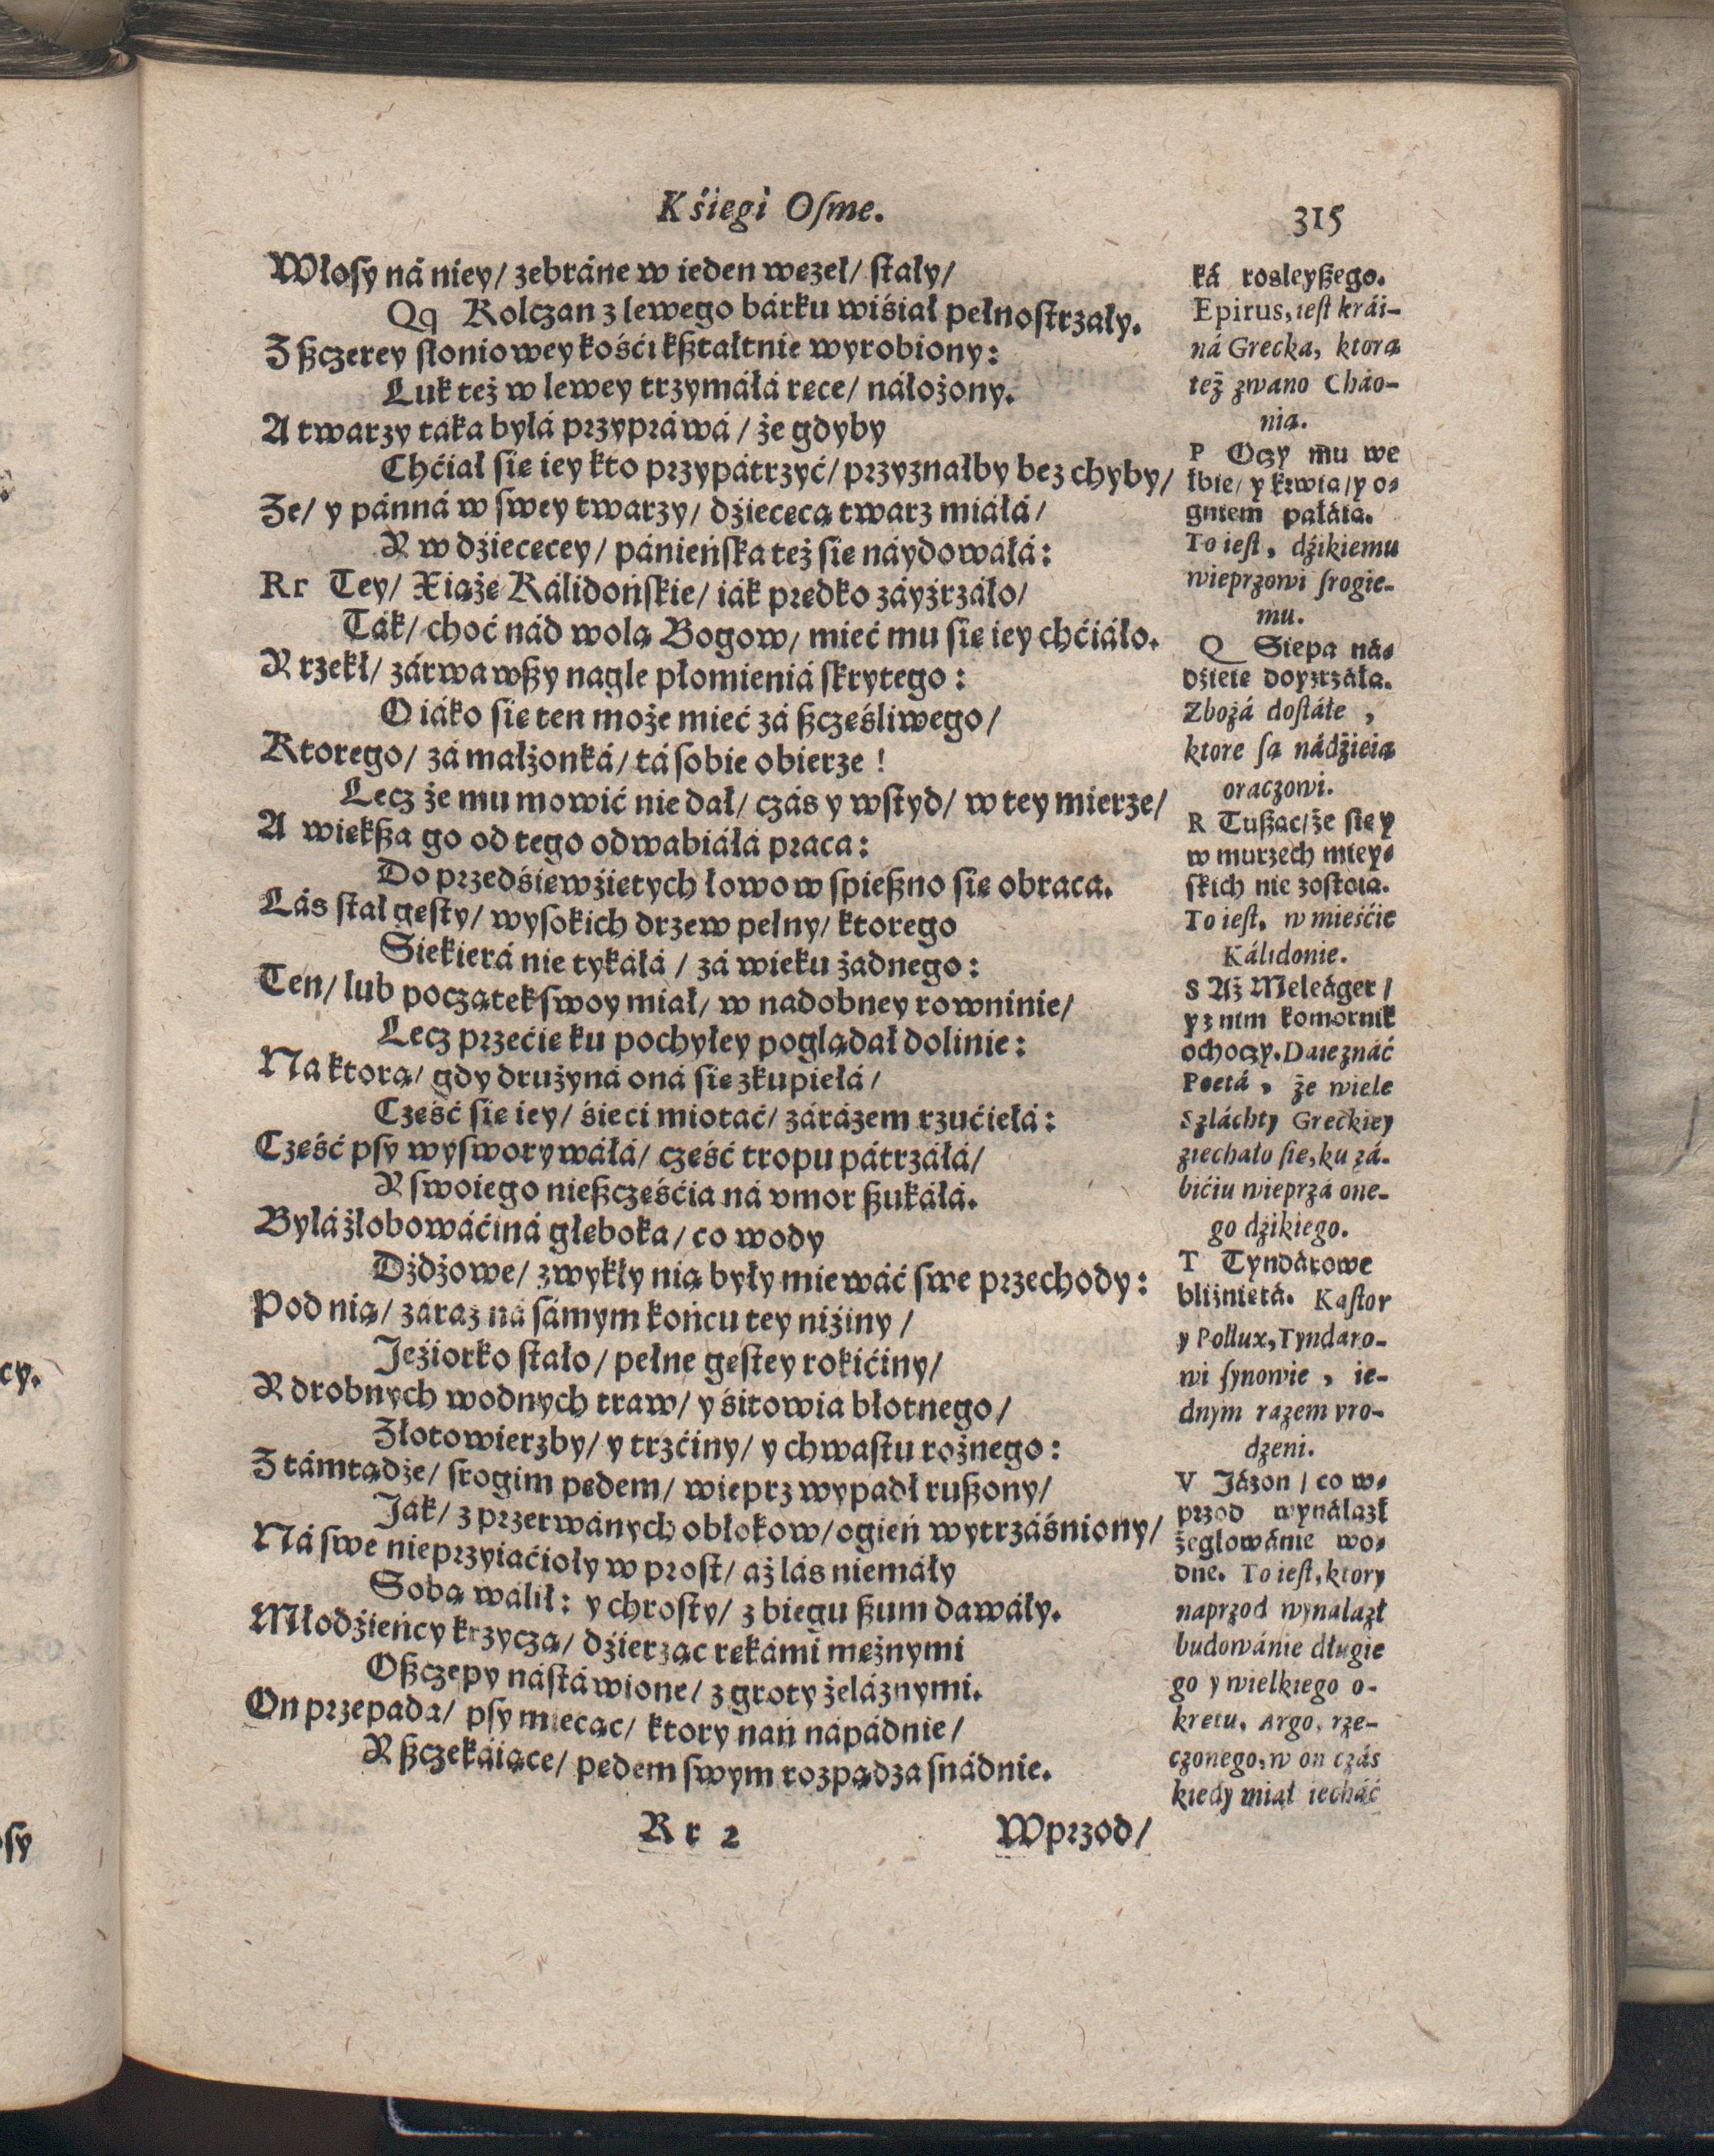 Kśięgi Oſme.
315
Włoſy ná niey/ zebráne w ieden węzeł/ ſtały/
Qq Kolczan z lewego bárku wiśiał pełnoſtrzały.
Z ßczerey słoniowey kośći kßtałtnie wyrobiony:
Luk też w lewey trzymáłá ręce/ náłożony.
A twarzy táka byłá przypráwá/ że gdyby
Chćiał się iey kto przypátrzyć/ przyznałby bez chyby/
Że/ y pánná w swey twarzy/ dźiecęcą twarz miáłá/
Y w dźiecęcey/ pánieńſka też się náydowáłá:
Rr Tey/ Xiążę Kálidońſkie/ iák prędko záyźrzáło/
Ták/ choć nád wolą Bogow/ mieć mu się iey chćiáło.
Y rzekł/ zárwawßy nagle płomieniá ſkrytego:
O iáko się ten może mieć zá ßczęśliwego/
Ktorego/ zá małżonká/ tá ſobie obierze!
Lecz że mu mowić nie dał/ czás y wſtyd/ w tey mierze/
A większa go od tego odwabiáłá praca:
Do przedśięwźiętych łowow spießno się obraca.
Lás ſtał gęſty/ wyſokich drzew pełny/ ktorego
Siekierá nie tykáłá/ zá wieku żadnego:
Ten/ lub początek swoy miał/ w nadobney rowninie/
Lecz przećię ku pochyłey poglądał dolinie:
Na ktorą/ gdy drużyná oná się zkupiełá/
Część się iey/ śieci miotáć/ zárázem rzućiełá:
Część pſy wysworywáłá/ część tropu pátrzáłá/
Y swoiego nießczęśćia ná vmor ßukáłá.
Byłá żłobowáćiná głęboka/ co wody
Dżdżowe/ zwykły nią były miewáć swe przechody:
Pod nią/ záraz ná ſámym końcu tey niźiny/
Jeźiorko ſtało/ pełne gęſtey rokićiny/
Y drobnych wodnych traw/ y śitowia błotnego/
Złotowierzby/ y trzćiny/ y chwaſtu rożnego:
Z támtądże/ srogim pędem/ wieprz wypadł rußony/
Ják/ z przerwánych obłokow/ ogień wytrzáśniony/
Ná swe nieprzyiaćioły w proſt/ aż lás niemáły
Sobą walił: y chroſty/ z biegu ßum dawáły.
Młodźieńcy krzyczą/ dźierżąc rękámi mężnymi
Oßczepy náſtáwione/ z groty żeláznymi.
On przepada/ pſy miecąc/ ktory nań nápádnie/
Y ßczekáiące/ pędem swym rozpądza snádnie.
Rr 2
Wprzod/
ká rosleyßego.
Epirus, ieſt krái-
ná Grecka, ktorą
też zwano Cháo-
nią.
P Oczy mu we
łbie/ y krwią/ y o-
gniem pałáią.
To ieſt, dźikiemu
wieprzowi ſrogie-
mu.
Q Siepa ná-
dźieię doyźrzáłą.
Zbożá doſtáłe,
ktore ſą nádźieią
oraczowi.
R Tußąc/ że się y
w murzech miey-
ſkich nie zoſtoią.
To ieſt, w mieśćie
Kálidonie.
S Aż Meleáger/
y z nim komornik
ochoczy. Daie znáć
Poetá, że wiele
Szláchty Greckiey
ziechało ſię, ku zá-
bićiu wieprzá one-
go dźikiego.
T Tyndárowe
bliźniętá. Kaſtor
y Pollux, Tyndaro-
wi ſynowie, ie-
dnym razem vro-
dzeni.
V Jázon/ co w-
przod wynálazł
żeglowánie wo-
dne. To ieſt, ktory
naprzod wynalazł
budowánie długie
go y wielkiego o-
krętu, Argo, rze-
czonego, w on czás
kiedy miał iecháć